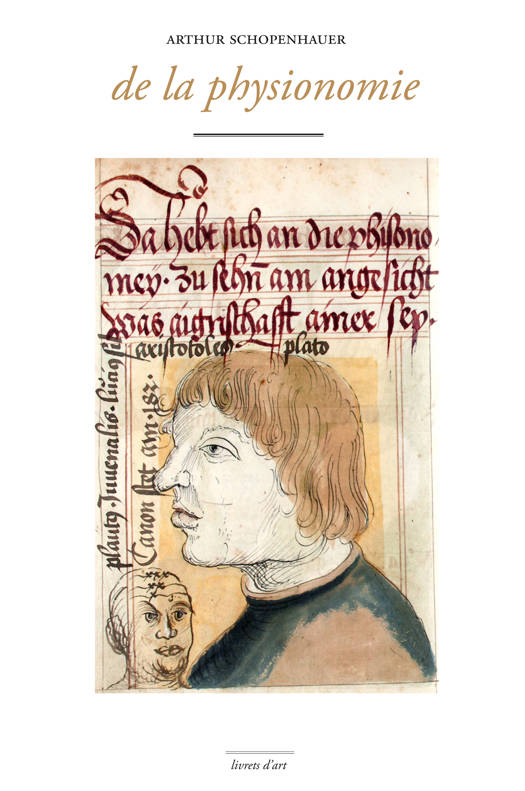 ARTHUR SCHOPENHAUER
de la physionomie
Da hebt sich an die phisono
mey. Zu sehn am angesicht
was aigrischafft ainer sey.
aristotoles plato
plautq Juuenalis. luciq
Canon stet am. 182.
livrets d'art